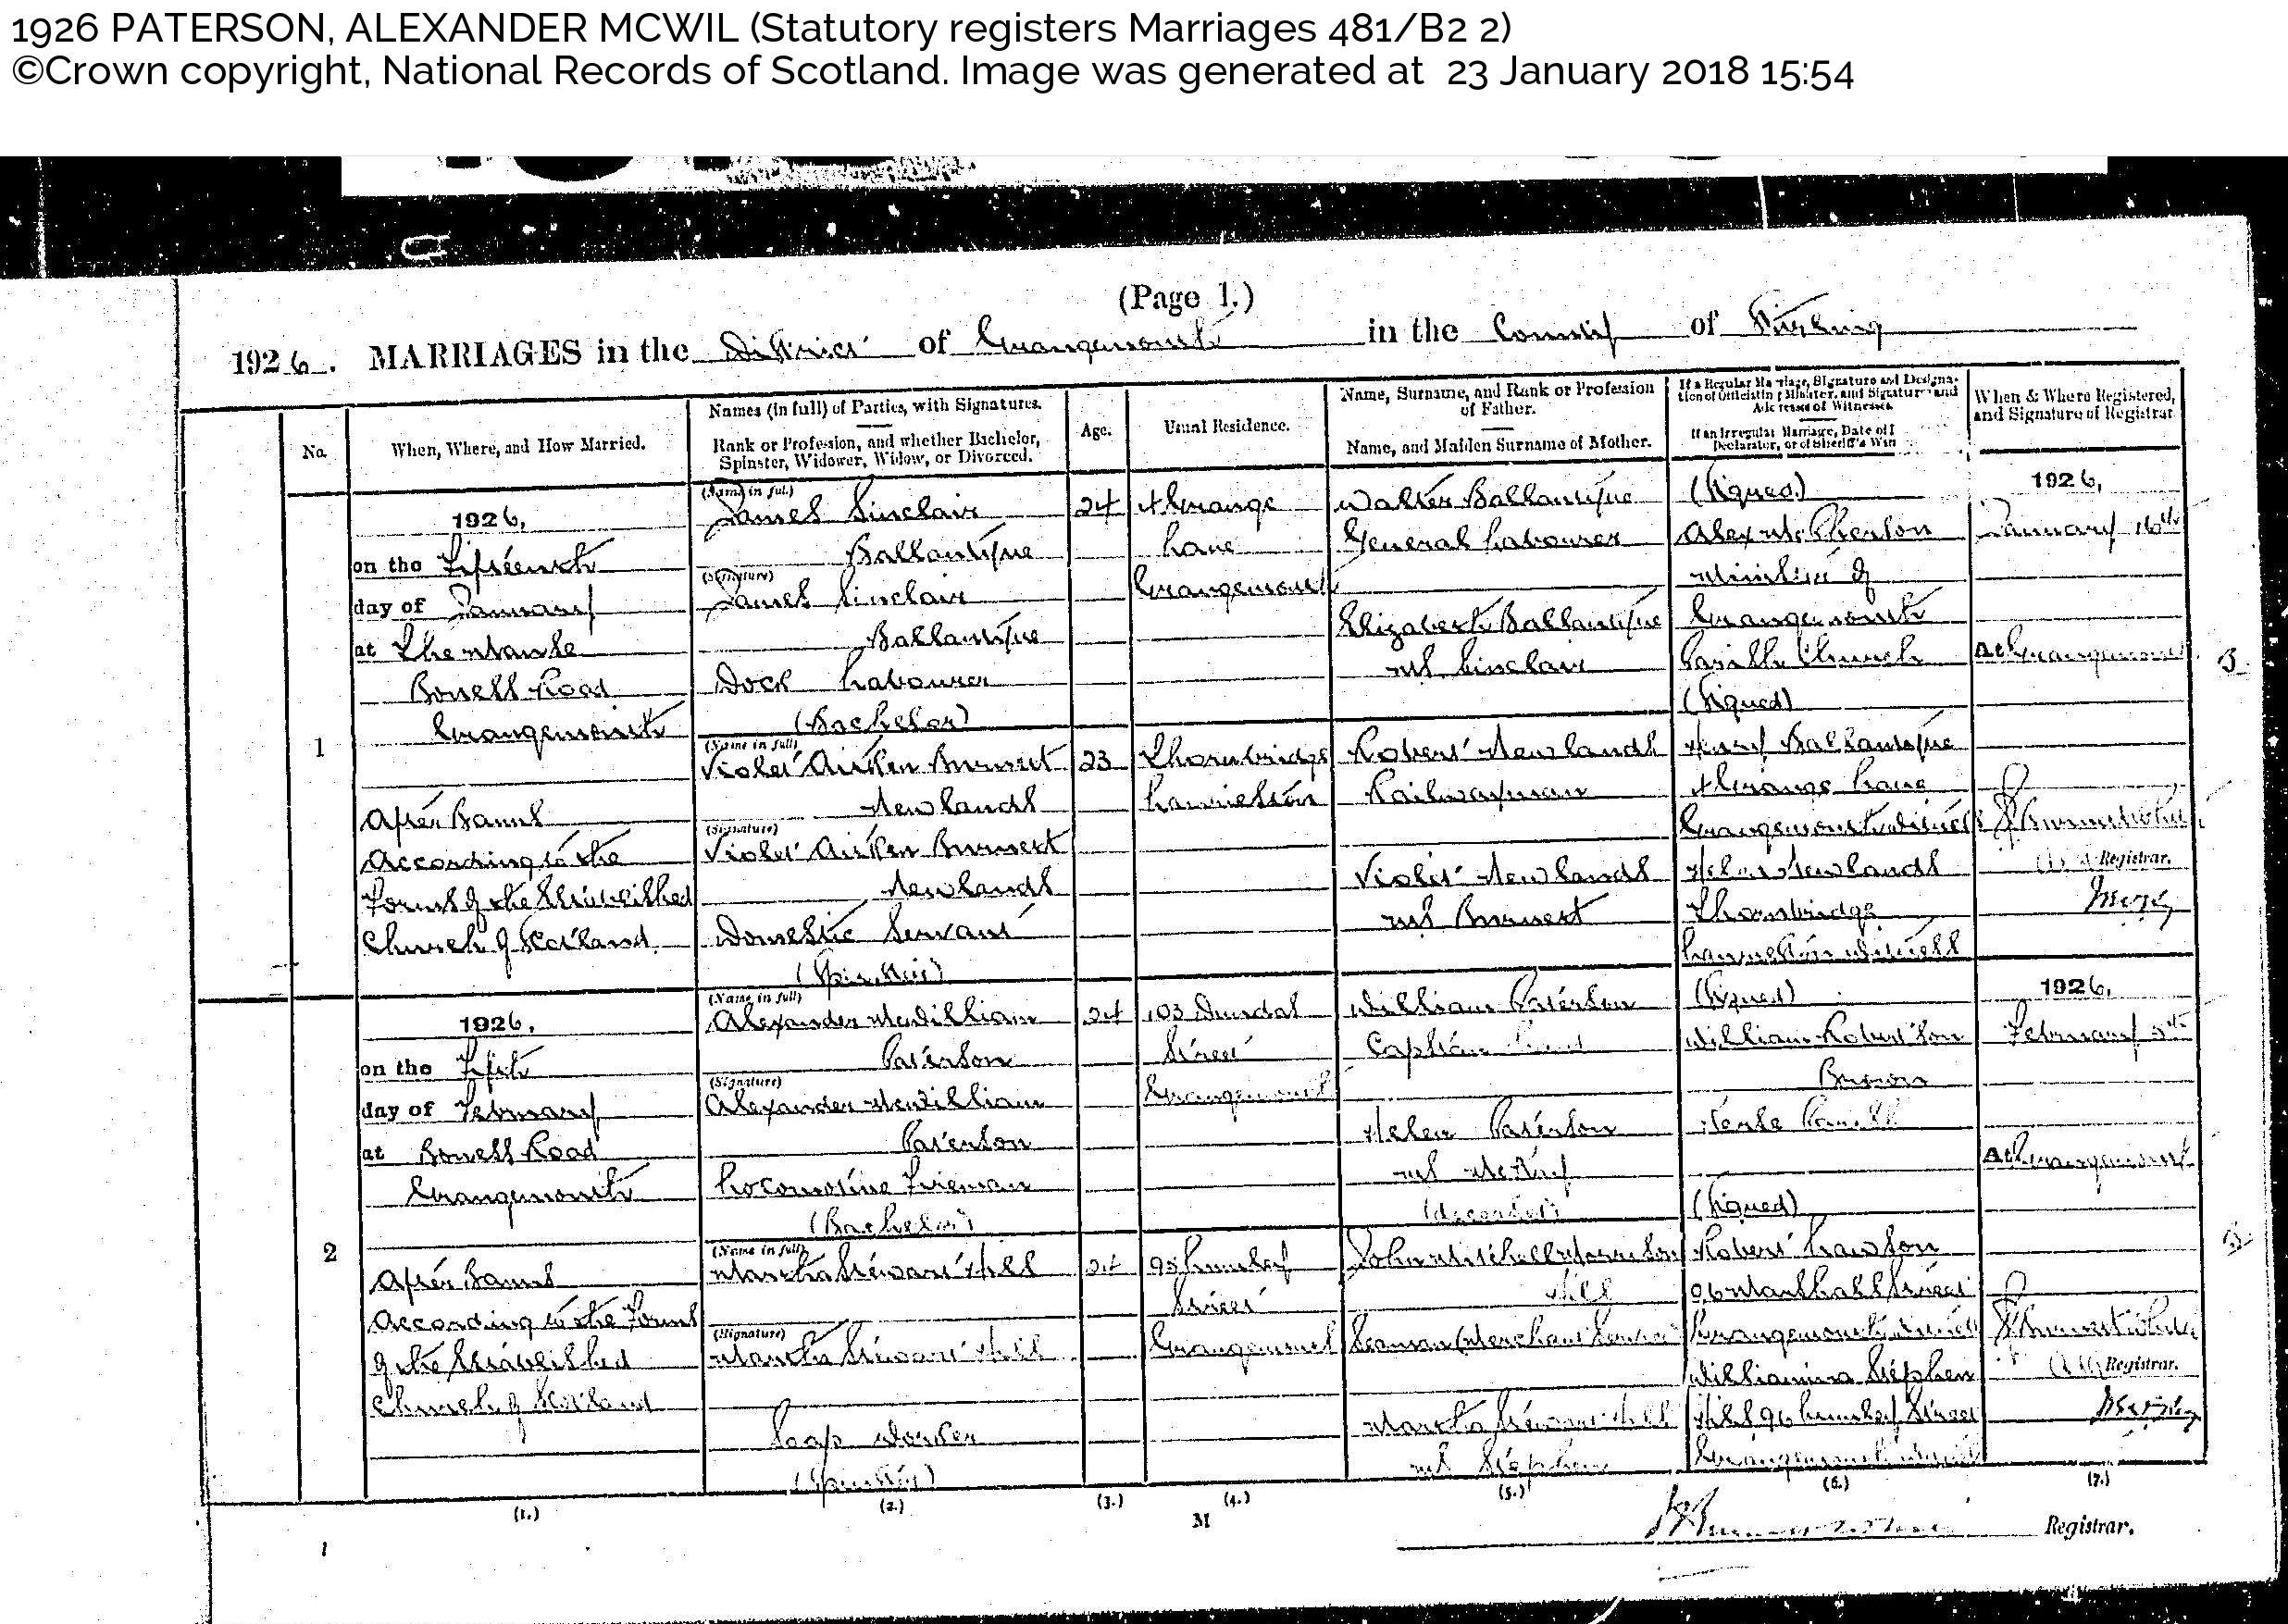 1926 PATERSON, ALEXANDER MCWIL (Statutory registers Marriages 481/B2 2)
©Crown copyright, National Records of Scotland. Image was generated at 23 January 2018 15:54
(Page 1.)
1926. MARRIAGES in the District of Grangemouth in the County of Stirling
No.
When, Where, and How Married.
Names (in full) of Parties, with Signatures.
Rank or Profession, and whether Bachelor,
Spinster, Widower, Widow, or Divorced.
Age.
Usual Residence.
Name, Surname, and Rank or Profession
of Father.
Name, and Maiden Surname of Mother.
If a Regular Marriage, Signature and Designa-
tion of Officiating Minister, and Signature and
Address of Witnesses.
If an Irregular Marriage, Date of
Declarator, or of Sheriff's Warrant
When & Where Registered,
and Signature of Registrar
1
1926,
on the Fifteenth
day of January
at The Manse
Boness Road
Grangemouth
After Banns
According to the
Forms of the Established
Church of Scotland
(Name in full)
James Sinclair
Ballantyne
(Signature)
James Sinclair
Ballantyne
Dock Labourer
(Bachelor)
24
4 Grange
Lane
Grangemouth
Walter Ballantyne
General Labourer
Elizabeth Ballantyne
ms Sinclair
(Name in full)
Violet Aitken Burnett
Newlands
(Signature)
Violet Aitken Burnett
Newlands
Domestic Servant
(Spinster)
23
Thornbridge
Laurieston
Robert Newlands
Railwayman
Violet Newlands
ms Burnett
(Signed)
Alex McPherson
Minister of
Grangemouth
Parish Church
(Signed)
Henry Ballantyne
4 Grange Lane
Grangemouth witness
Helen Newlands
Thornbridge
Laurieston witness
1926,
January 16th
At Grangemouth
Registrar.
2
1926,
on the Fifth
day of February
at Boness Road
Grangemouth
After Banns
According to the Forms
of the Established
Church of Scotland
(Name in full)
Alexander McWilliam
Paterson
(Signature)
Alexander McWilliam
Paterson
Locomotive Fireman
(Bachelor)
24
103 Dundas
Street
Grangemouth
William Paterson
Helen Paterson
ms McKay
(deceased)
(Name in full)
Martha Stewart Hill
(Signature)
Martha Stewart Hill
Soap Worker
(Spinster)
24
Lumley
Street
Grangemouth
John Mitchell Morrison
Hill
Seaman (Merchant Service)
Martha Stewart Hill
ms Stephen
(Signed)
William Robertson
Brown
Kerse
(Signed)
Robert Lawson
96 Marshall Street
Grangemouth witness
Williamina Stephen
Hill 96 Lumley Street
Grangemouth witness
1926,
February 5th
At Grangemouth
Registrar.
(1.) (2.) (3.) (4.) (5.) (6.) (7.)
M
Registrar.
1